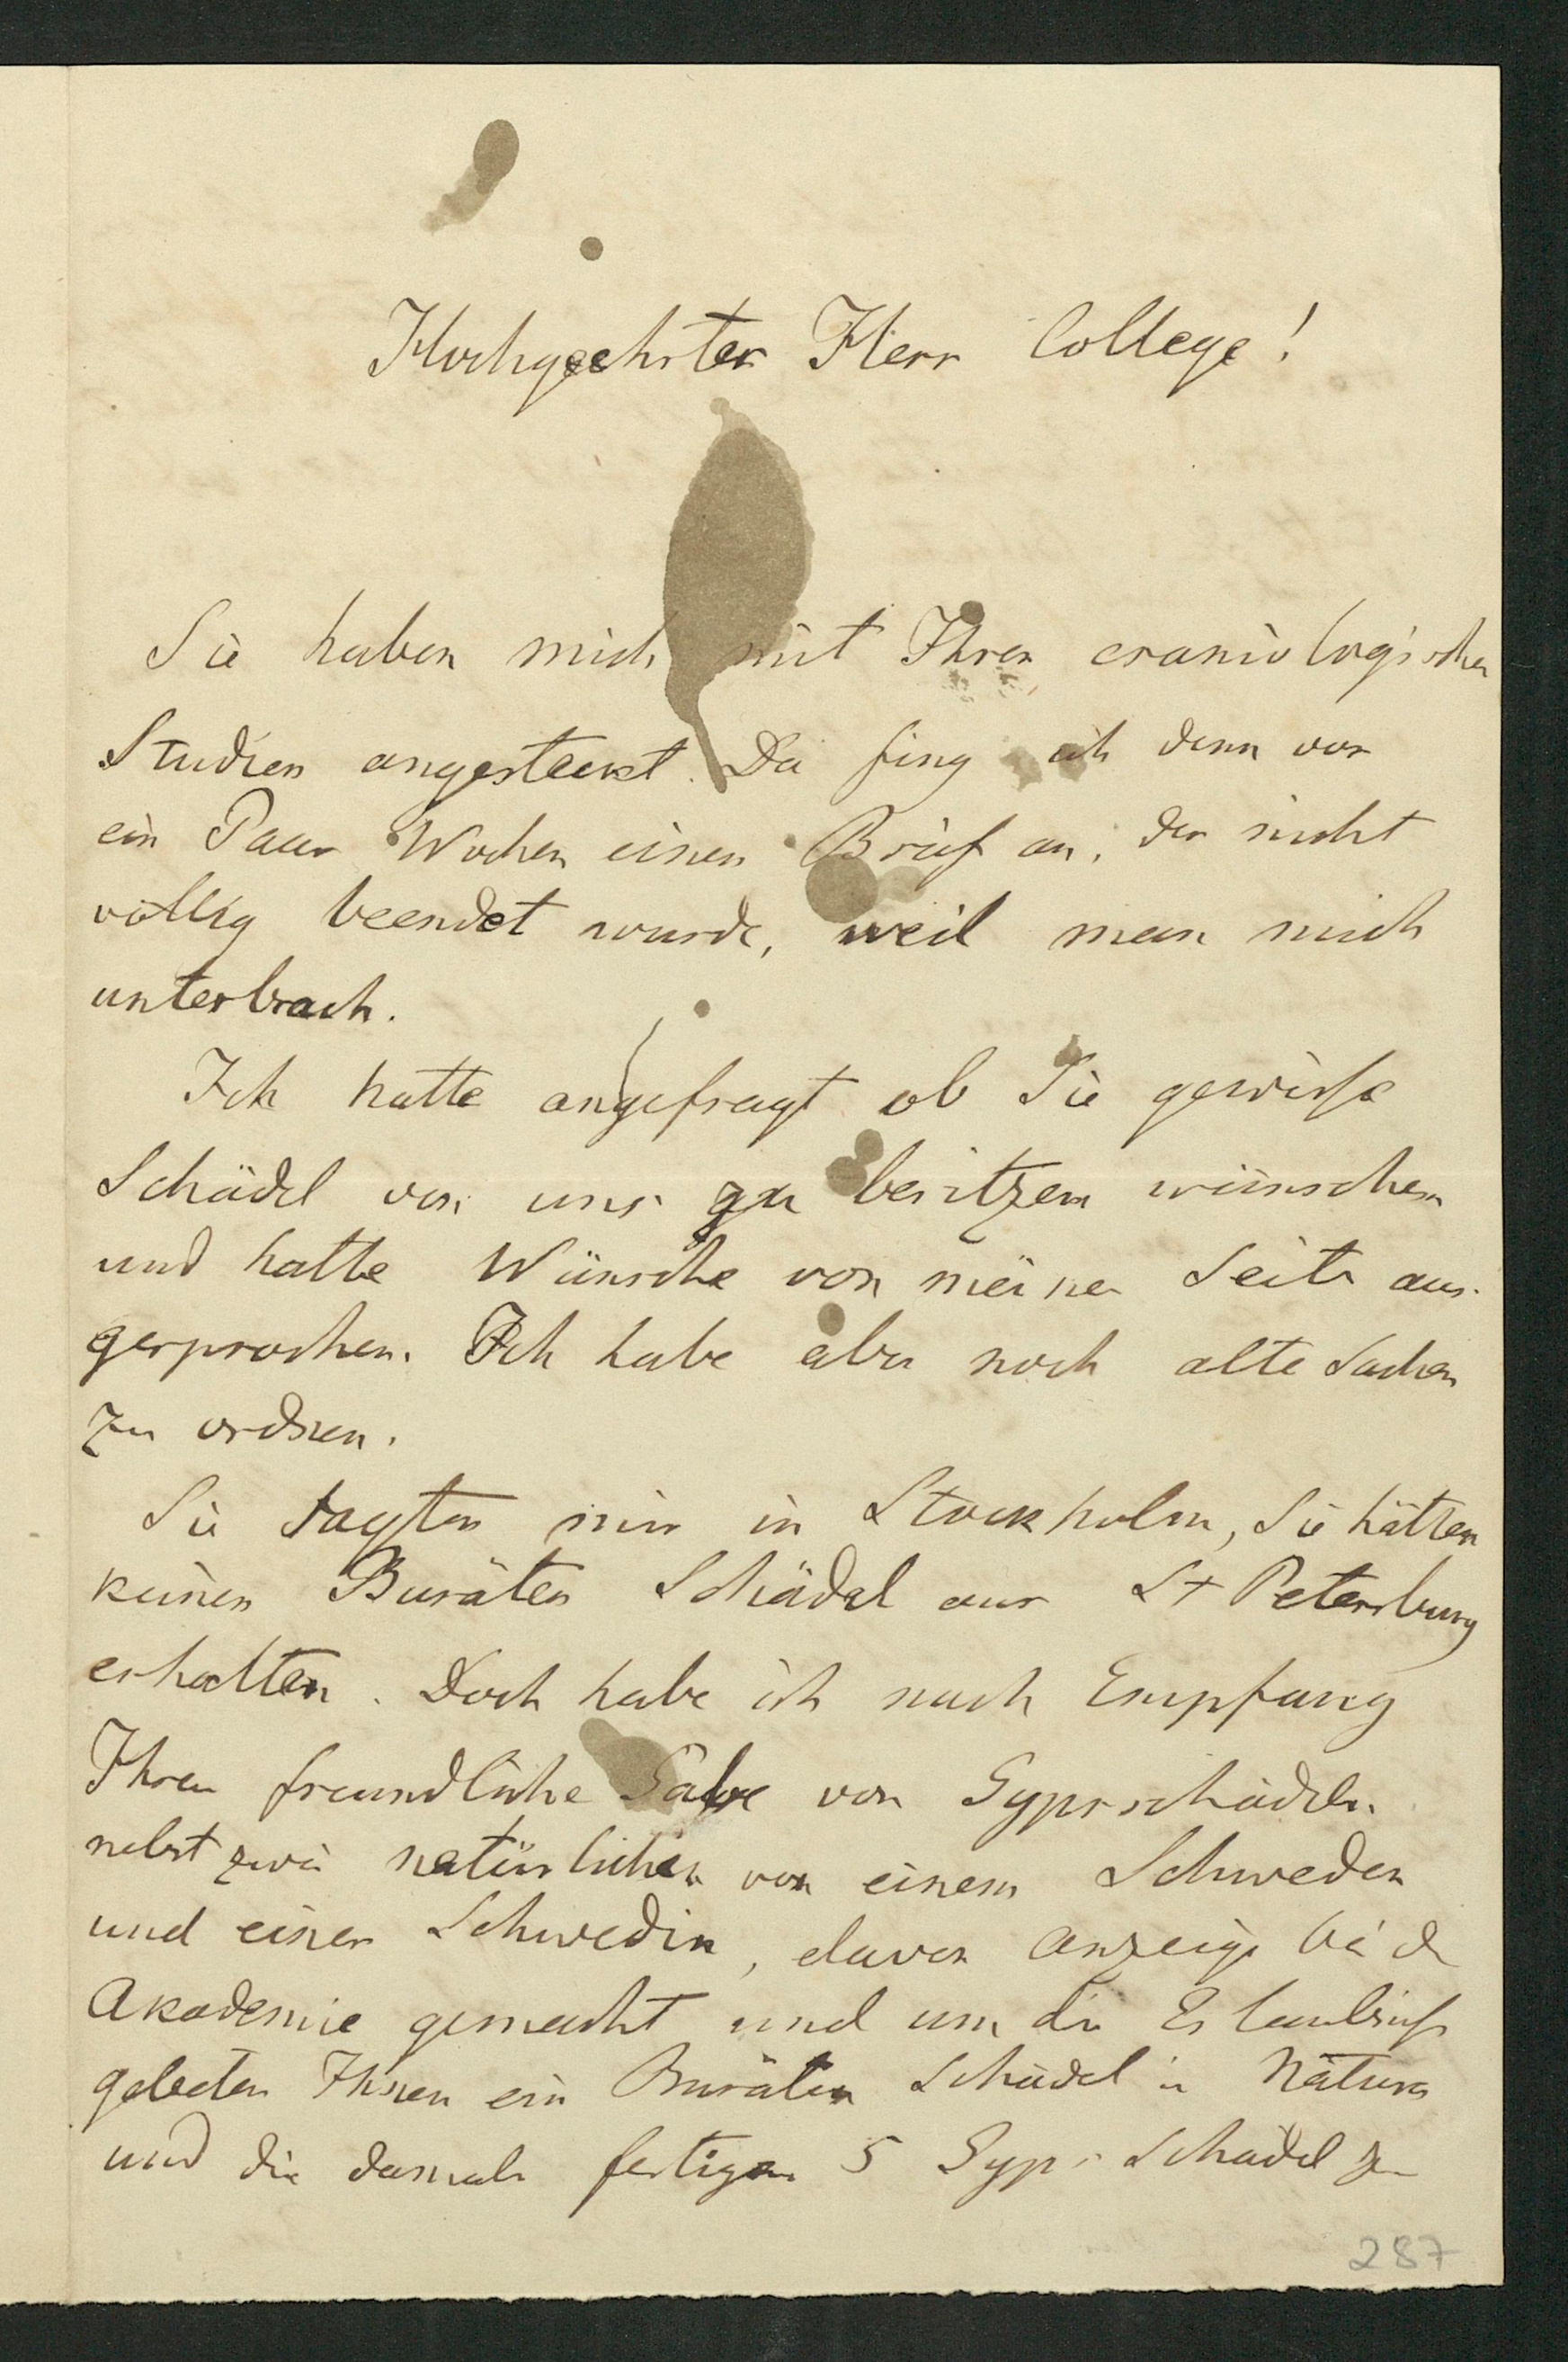 Hochgeehrter Herr College!
Sie haben mich mit Ihren craniologischen
Studien angesteckt. Da fing ich denn vor
ein Paar Wochen einen Brief an, der nicht
völlig beendet wurde, weil man mich
unterbrach.
Ich hatte angefragt ob Sie gewisse
Schädel von uns zu besitzen wünschen
und hatte Wünsche von meiner Seite aus-
gesprochen. Ich habe aber noch alte Sachen
zu ordnen.
Sie sagten mir in Stockholm, Sie hätten
keinen Buräten Schädel aus St Petersburg
erhalten. Doch habe ich nach Empfang
Ihrer freundliche Gabe von Gypsschädeln
nebst zwei natürlichen von einem Schweden
und einer Schwedin, davon Anzeige bei d
Akademie gemacht und um die Erlaubniss
gebeten Ihnen ein Buräten Schädel in Natura
und die damals fertigen 5 Gyps Schädel zu
287